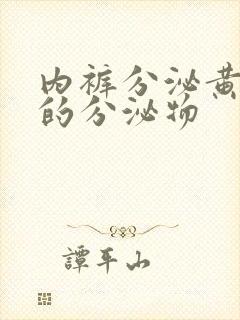 内裤分泌黄
的分泌物
譚平山